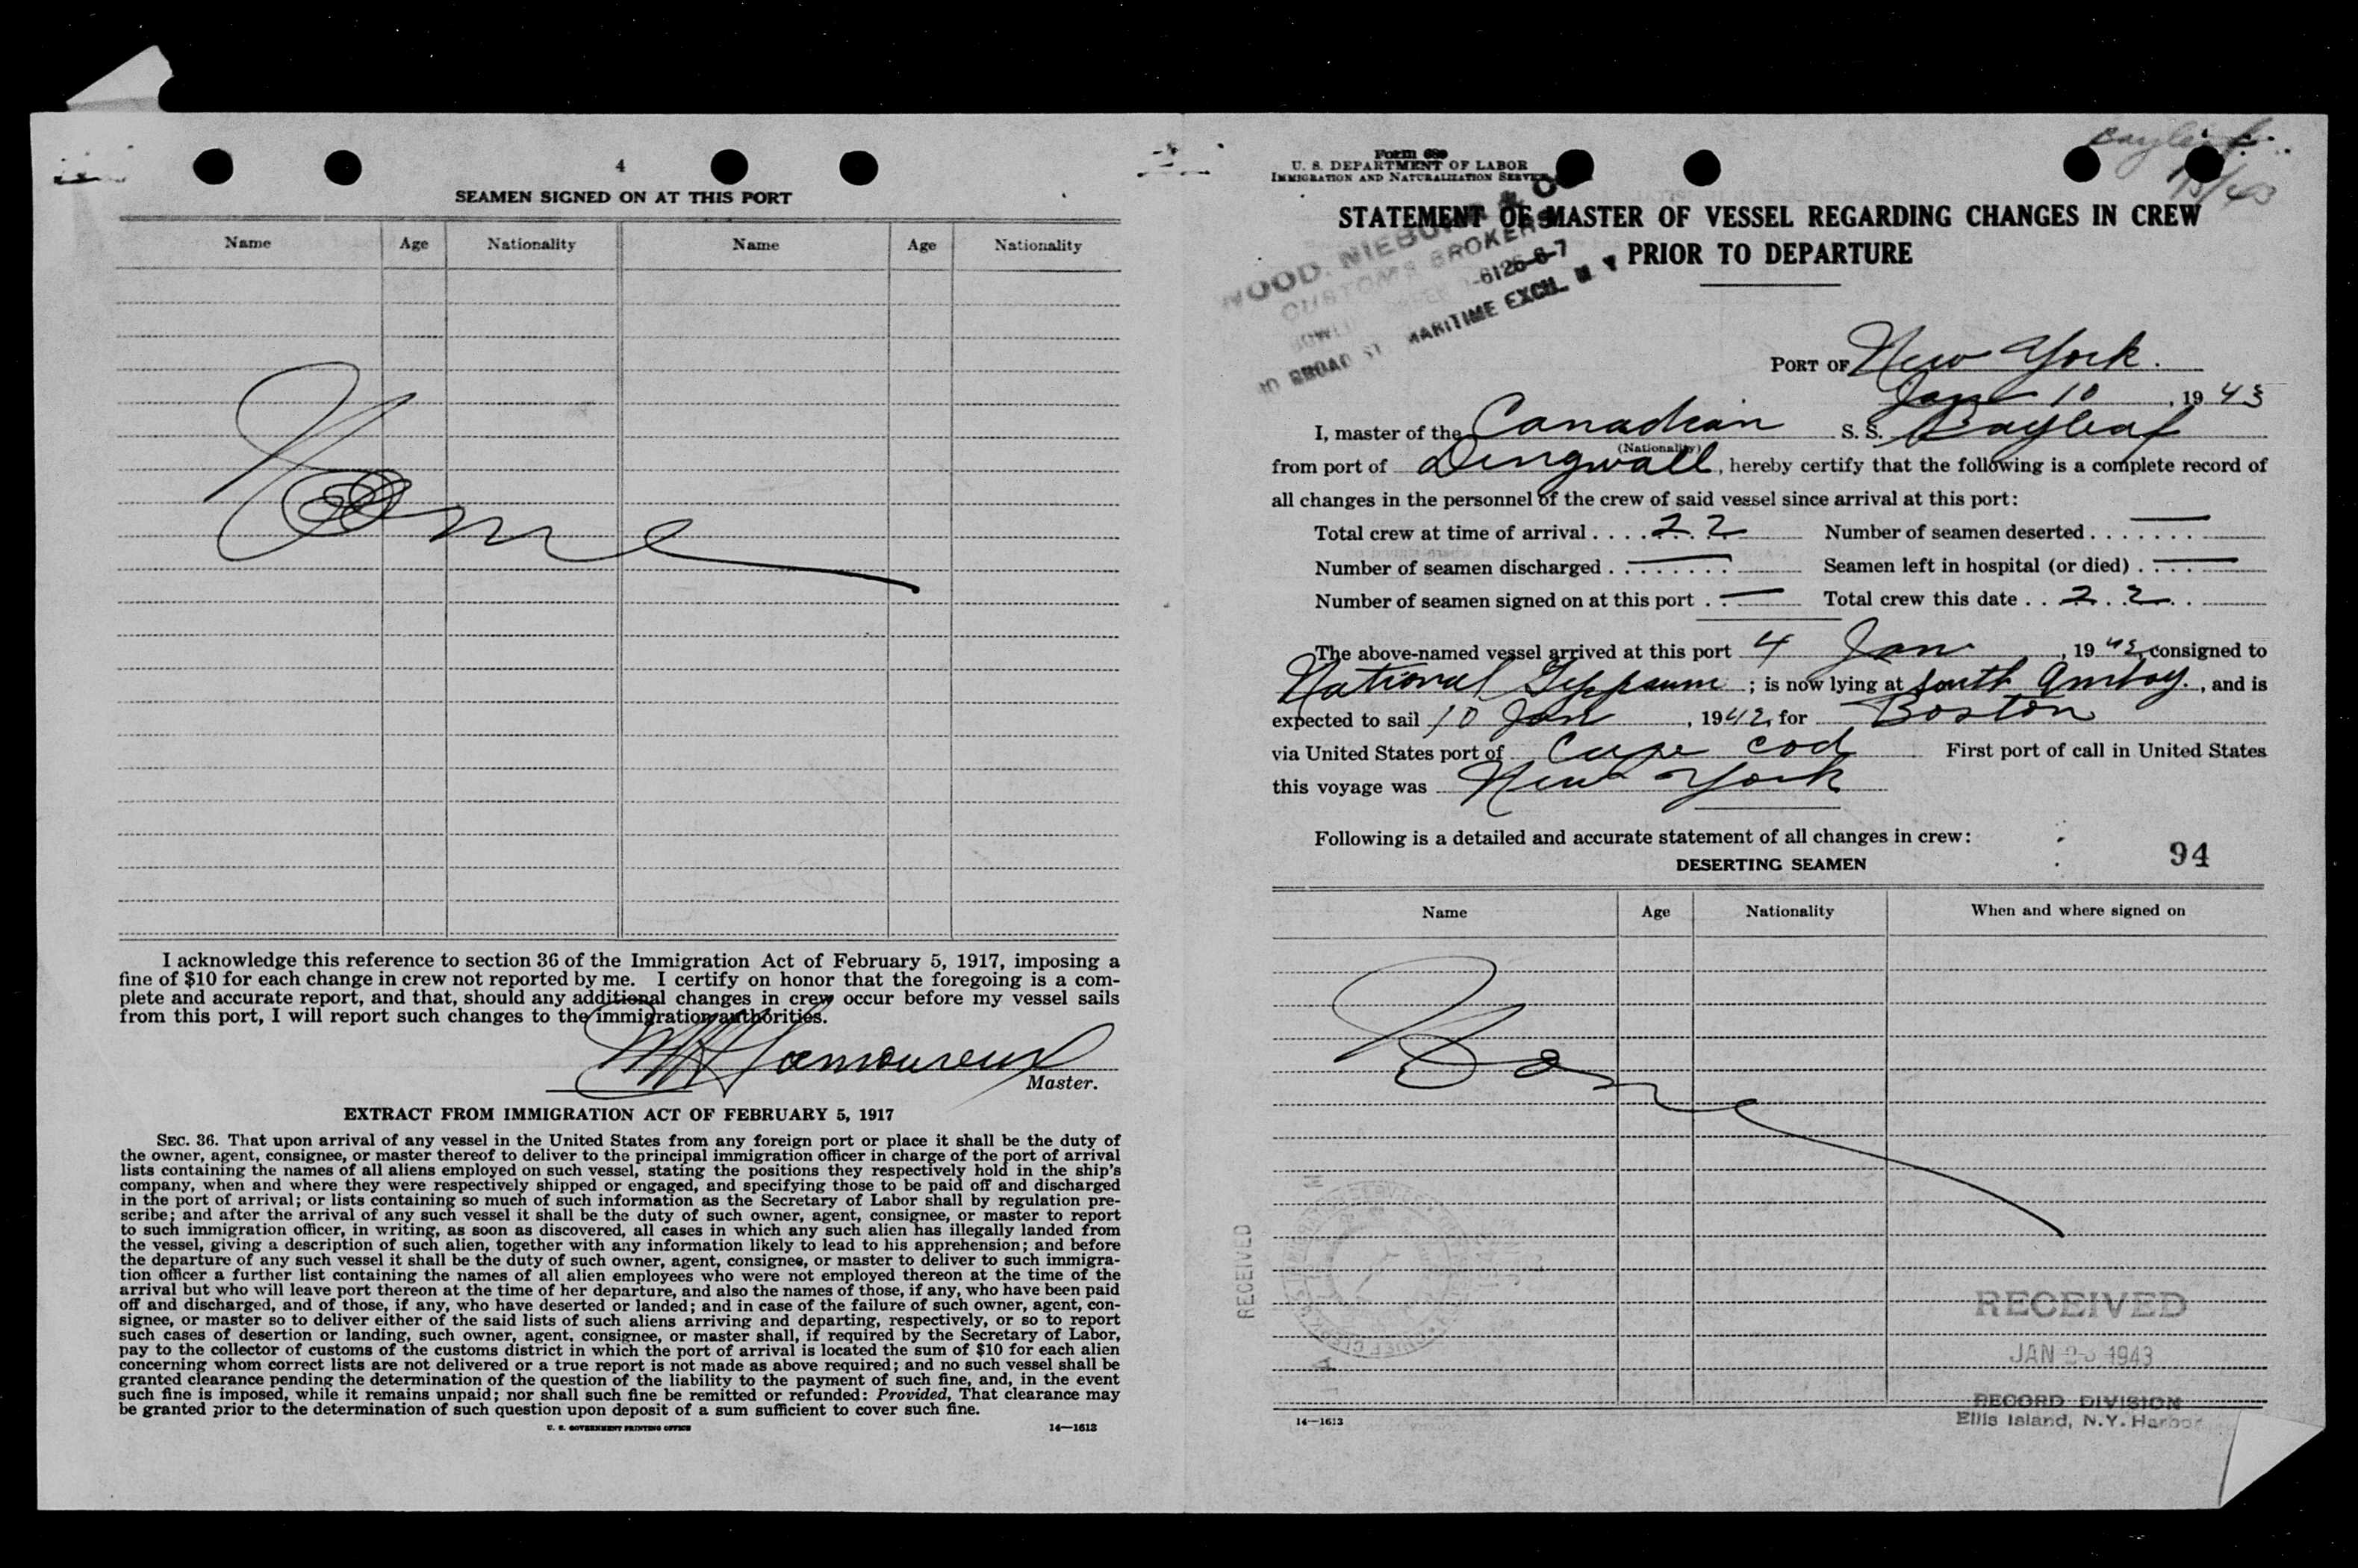 4
SEAMEN SIGNED ON AT THIS PORT
Name Age Nationality Name Age Nationality
None
I acknowledge this reference to section 36 of the Immigration Act of February 5, 1917, imposing a
fine of $10 for each change in crew not reported by me. I certify on honor that the foregoing is a com-
plete and accurate report, and that, should any additional changes in crew occur before my vessel sails
from this port, I will report such changes to the immigration authorities.
Lamoureux
Master.
EXTRACT FROM IMMIGRATION ACT OF FEBRUARY 5, 1917
SEC. 36. That upon arrival of any vessel in the United States from any foreign port or place it shall be the duty of
the owner, agent, consignee, or master thereof to deliver to the principal immigration officer in charge of the port of arrival
lists containing the names of all aliens employed on such vessel, stating the positions they respectively hold in the ship's
company, when and where they were respectively shipped or engaged, and specifying those to be paid off and discharged
in the port of arrival; or lists containing so much of such information as the Secretary of Labor shall by regulation pre-
scribe; and after the arrival of any such vessel it shall be the duty of such owner, agent, consignee, or master to report
to such immigration officer, in writing, as soon as discovered, all cases in which any such alien has illegally landed from
the vessel, giving a description of such alien, together with any information likely to lead to his apprehension; and before
the departure of any such vessel it shall be the duty of such owner, agent, consignee, or master to deliver to such immigra-
tion officer a further list containing the names of all alien employees who were not employed thereon at the time of the
arrival but who will leave port thereon at the time of her departure, and also the names of those, if any, who have been paid
off and discharged, and of those, if any, who have deserted or landed; and in case of the failure of such owner, agent, con-
signee, or master so to deliver either of the said lists of such aliens arriving and departing, respectively, or so to report
such cases of desertion or landing, such owner, agent, consignee, or master shall, if required by the Secretary of Labor,
pay to the collector of customs of the customs district in which the port of arrival is located the sum of $10 for each alien
concerning whom correct lists are not delivered or a true report is not made as above required; and no such vessel shall be
granted clearance pending the determination of the question of the liability to the payment of such fine, and, in the event
such fine is imposed, while it remains unpaid; nor shall such fine be remitted or refunded: Provided, That clearance may
be granted prior to the determination of such question upon deposit of a sum sufficient to cover such fine.
U. S. GOVERNMENT PRINTING OFFICE 14—1613
Form 689
U. S. DEPARTMENT OF LABOR
IMMIGRATION AND NATURALIZATION SERVICE
STATEMENT OF MASTER OF VESSEL REGARDING CHANGES IN CREW
PRIOR TO DEPARTURE
CUSTOMS BROKERS
-6126-8-7
BROAD ST. MARITIME EXCH. N Y
PORT OF New York.
Jan 10, 1943
I, master of the Canadian S. S. Bayleaf
(Nationality)
from port of Dingwall, hereby certify that the following is a complete record of
all changes in the personnel of the crew of said vessel since arrival at this port:
Total crew at time of arrival .... 22 Number of seamen deserted ....... —
Number of seamen discharged ........ — Seamen left in hospital (or died) .... —
Number of seamen signed on at this port .. — Total crew this date .. 22 ..
The above-named vessel arrived at this port 4 Jan, 1942, consigned to
National Gyppsum; is now lying at South Amboy., and is
expected to sail 10 Jan, 1942, for Boston
via United States port of Cape Cod First port of call in United States
this voyage was New York
Following is a detailed and accurate statement of all changes in crew:
DESERTING SEAMEN 94
Name Age Nationality When and where signed on
None
RECEIVED
RECEIVED
JAN 1943
RECORD DIVISION
Ellis Island, N.Y. Harbor
14—1613